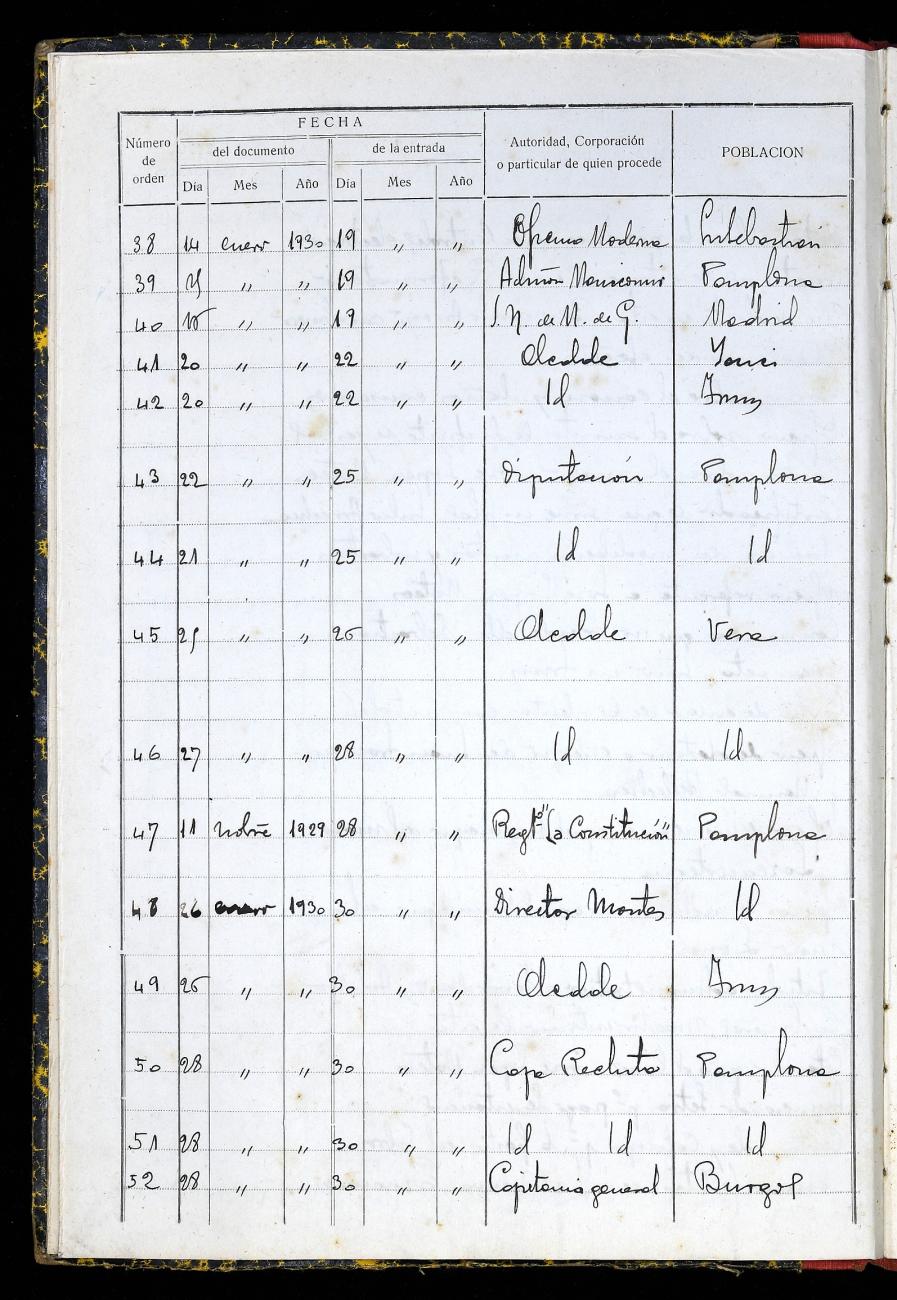 FECHA
Número de orden
del documento
de la entrada
Autoridad, Corporación o particular de quien procede
POBLACION
Día Mes Año Día Mes Año
38 14 enero 1930 19 " " Moderna
39 " " 19 " " Admón Manicomio Pamplona
40 " " 19 " " Madrid
41 20 " " 22 " " Alcalde Yanci
42 20 " " 22 " " Id Irun
43 22 " " 25 " " Diputación Pamplona
44 21 " " 25 " " Id Id
45 25 " " 26 " " Alcalde Vera
46 27 " " 28 " " Id Id
47 11 nobre 1929 28 " " Regto "La Constitución" Pamplona
48 26 enero 1930 30 " " Director Montes Id
49 26 " " 30 " " Alcalde Irun
50 28 " " 30 " " Caja Recluta Pamplona
51 28 " " 30 " " Id Id Id
52 28 " " 30 " " Capitania general Burgos